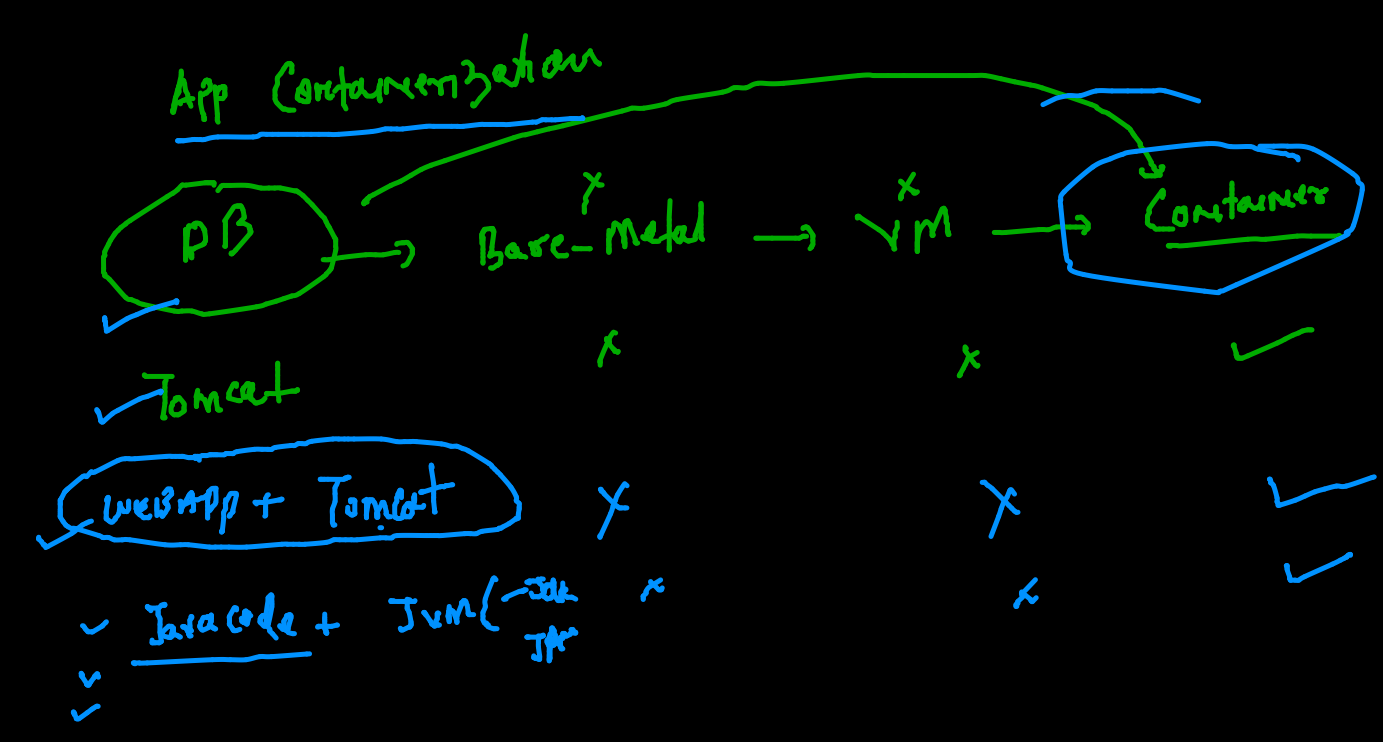 App Containerization
DB → Bare-Metal → VM → Container
Tomcat
WEBAPP + Tomcat
Javacode + JVM (JDK
JRE